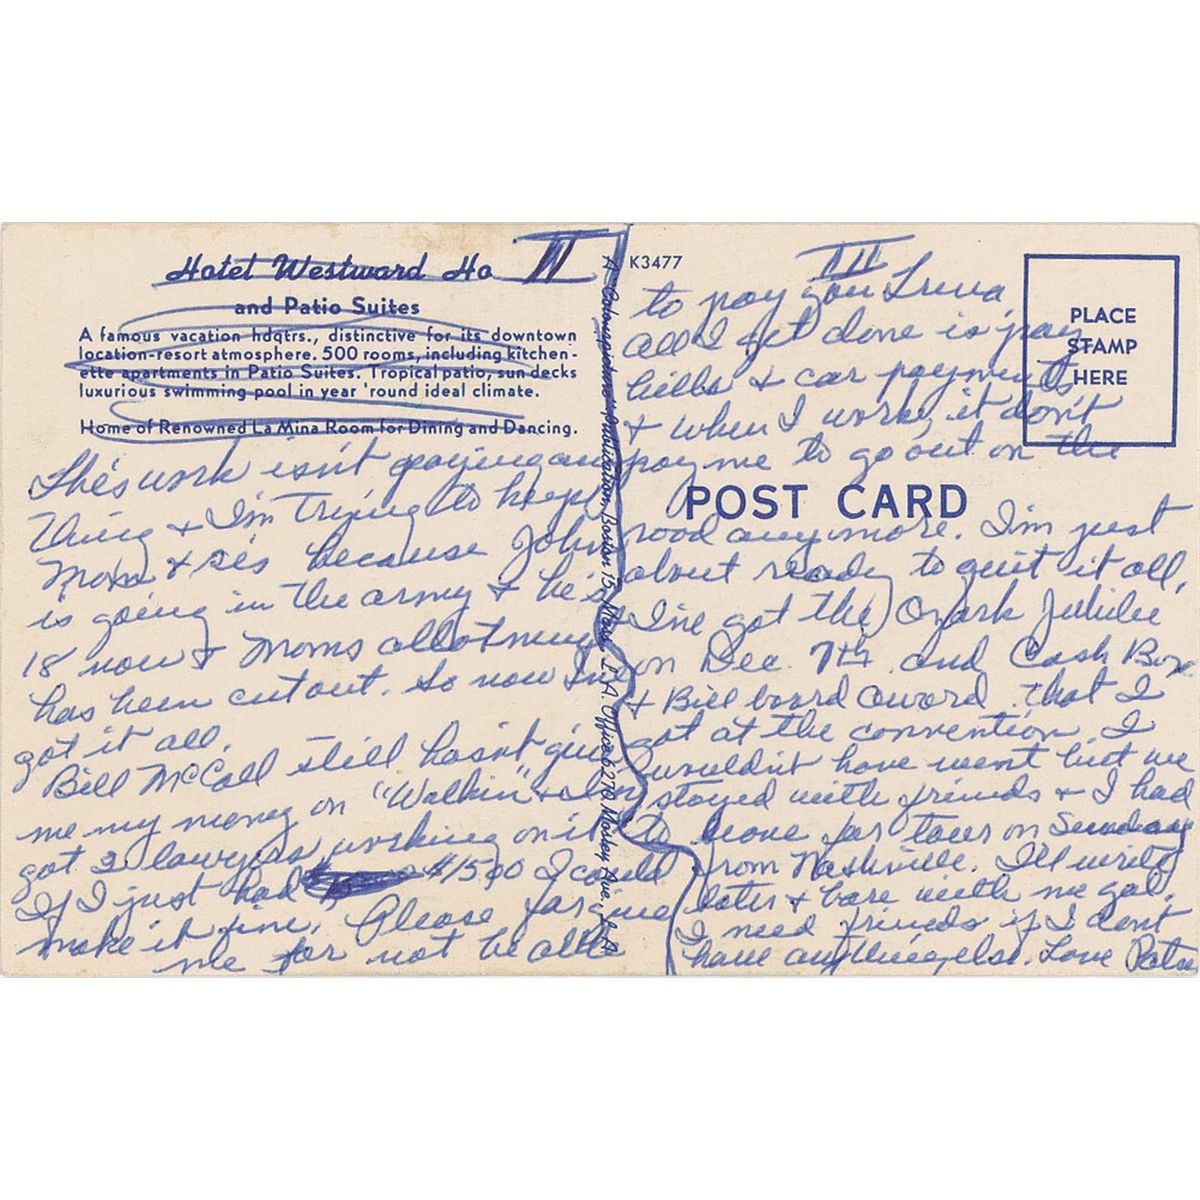 Hotel Westward Ho II
and Patio Suites
A famous vacation hdqtrs., distinctive for its downtown
location-resort atmosphere. 500 rooms, including kitchen-
ette apartments in Patio Suites. Tropical patio, sun decks
luxurious swimming pool in year 'round ideal climate.
Home of Renowned La Mina Room for Dining and Dancing.
This work isn't paying
thing & I'm trying to keep
Mom & sis because John
is going in the army & he's
18 now & Moms allotment
has been cut out. So now I've
got it all.
Bill McCall still hasn't give
me my money on "Walkin" & I've
got 2 lawyers working on it
If I just had $1500 I could
make it fine. Please forgive
me for not be able
A Colourpicture Publication, Boston 15, Mass. L.A. Office 6270 Morley Ave., L.A.
K3477
III
to pay you Treva
all I get done is pay
bills & car payments
& when I work, it don't
pay me to go out on the
PLACE
STAMP
HERE
POST CARD
road anymore. I'm just
about ready to quit it all,
I've got the Ozark Jubilee
on Dec. 7th and Cash Box
& Billboard award that I
got at the convention, I
wouldn't have went but we
stayed with friends & I had
to leave for tour on Sunday
from Nashville. I'll write
later & bare with me gal,
I need friends if I don't
have anything else. Love Patsy